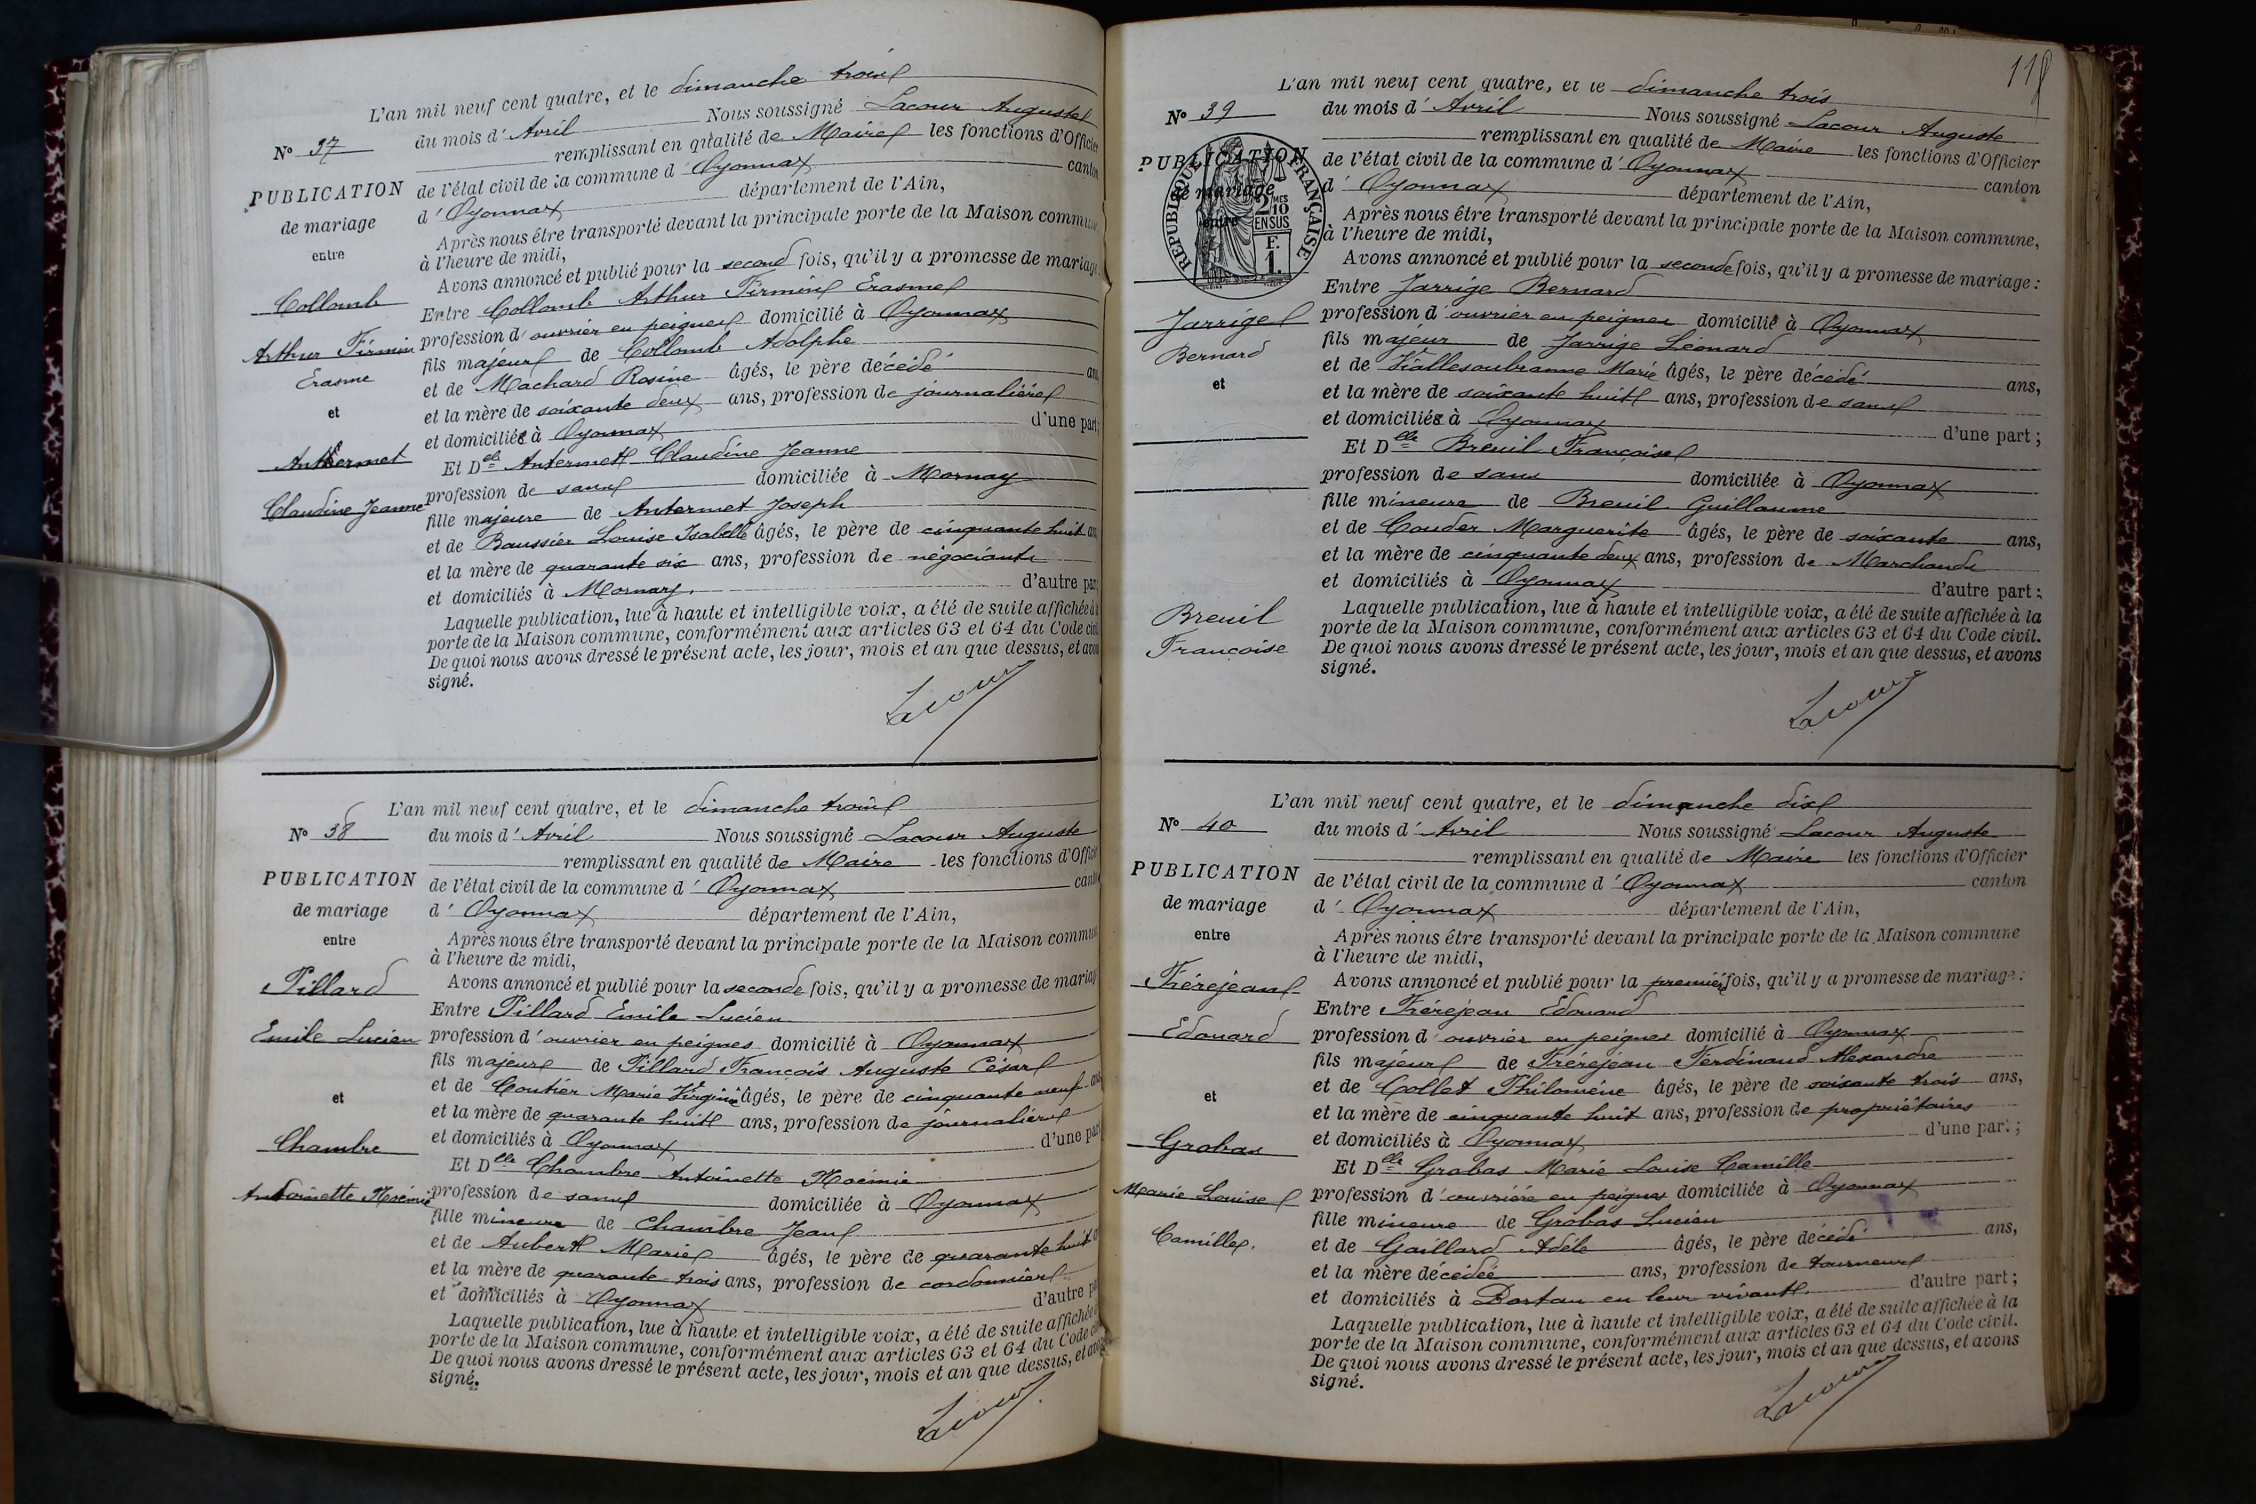 L'an mil neuf cent quatre, et le dimanche trois
N° 37
du mois d' Avril Nous soussigné Lacour Auguste
remplissant en qualité de Maire les fonctions d'Officier
PUBLICATION
de mariage
entre
de l'état civil de la commune d' Oyonnax canton
d' Oyonnax département de l'Ain,
Après nous être transporté devant la principale porte de la Maison commune
à l'heure de midi,
Avons annoncé et publié pour la second fois, qu'il y a promesse de mariage
Collomb
Arthur Firmin
Erasme
et
Anthermet
Claudine Jeanne
Entre Collomb Arthur Firmin Erasme
profession d' ouvrier en peignes domicilié à Oyonnax
fils majeur de Collomb Adolphe
et de Machard Rosine âgés, le père décédé ans
et la mère de soixante deux ans, profession de journalière
et domiciliés à Oyonnax d'une part;
Et Delle Antermet Claudine Jeanne
profession de sans domiciliée à Mornay
fille majeure de Antermet Joseph
et de Baussier Louise Isabelle âgés, le père de cinquante huit ans
et la mère de quarante six ans, profession de négociants
et domiciliés à Mornay. d'autre part
Laquelle publication, lue à haute et intelligible voix, a été de suite affichée à la
porte de la Maison commune, conformément aux articles 63 et 64 du Code civil
De quoi nous avons dressé le présent acte, les jour, mois et an que dessus, et avons
signé.
Lacour
L'an mil neuf cent quatre, et le dimanche trois
N° 38
du mois d' Avril Nous soussigné Lacour Auguste
remplissant en qualité de Maire les fonctions d'Officier
PUBLICATION
de mariage
entre
de l'état civil de la commune d' Oyonnax canton
d' Oyonnax département de l'Ain,
Après nous être transporté devant la principale porte de la Maison commune
à l'heure de midi,
Avons annoncé et publié pour la seconde fois, qu'il y a promesse de mariage
Pillard
Emile Lucien
et
Chambre
Antoinette Noémie
Entre Pillard Emile Lucien
profession d' ouvrier en peignes domicilié à Oyonnax
fils majeur de Pillard François Auguste César
et de Coutier Marie Virginie âgés, le père de cinquante neuf ans
et la mère de quarante huit ans, profession de journalière
et domiciliés à Oyonnax d'une part
Et Delle Chambre Antoinette Noémie
profession de sans domiciliée à Oyonnax
fille mineure de Chambre Jean
et de Aubert Marie âgés, le père de quarante huit
et la mère de quarante trois ans, profession de cordonnier
et domiciliés à Oyonnax d'autre part
Laquelle publication, lue à haute et intelligible voix, a été de suite affichée à
porte de la Maison commune, conformément aux articles 63 et 64 du Code
De quoi nous avons dressé le présent acte, les jour, mois et an que dessus, et avons
signé.
Lacour
118
L'an mil neuf cent quatre, et le dimanche trois
N° 39
du mois d' Avril Nous soussigné Lacour Auguste
remplissant en qualité de Maire les fonctions d'Officier
PUBLICATION
de mariage
entre
RÉPUBLIQUE FRANÇAISE
2 MES
10
EN SUS
F.
1.
de l'état civil de la commune d' Oyonnax canton
d' Oyonnax département de l'Ain,
Après nous être transporté devant la principale porte de la Maison commune,
à l'heure de midi,
Avons annoncé et publié pour la seconde fois, qu'il y a promesse de mariage :
Jarrige
Bernard
et
Breuil
Françoise
Entre Jarrige Bernard
profession d' ouvrier en peignes domicilié à Oyonnax
fils majeur de Jarrige Léonard
et de Viallesoubranne Marie âgés, le père décédé ans,
et la mère de soixante huit ans, profession de sans
et domiciliés à Oyonnax d'une part ;
Et Delle Breuil Françoise
profession de sans domiciliée à Oyonnax
fille mineure de Breuil Guillaume
et de Couder Marguerite âgés, le père de soixante ans,
et la mère de cinquante deux ans, profession de Marchands
et domiciliés à Oyonnax d'autre part :
Laquelle publication, lue à haute et intelligible voix, a été de suite affichée à la
porte de la Maison commune, conformément aux articles 63 et 64 du Code civil.
De quoi nous avons dressé le présent acte, les jour, mois et an que dessus, et avons
signé.
Lacour
L'an mil neuf cent quatre, et le dimanche dix
N° 40
du mois d' Avril Nous soussigné Lacour Auguste
remplissant en qualité de Maire les fonctions d'Officier
PUBLICATION
de mariage
entre
de l'état civil de la commune d' Oyonnax canton
d' Oyonnax département de l'Ain,
Après nous être transporté devant la principale porte de la Maison commune
à l'heure de midi,
Avons annoncé et publié pour la première fois, qu'il y a promesse de mariage :
Frérejean
Edouard
et
Grobas
Marie Louise
Camille.
Entre Frérejean Edouard
profession d' ouvrier en peignes domicilié à Oyonnax
fils majeur de Frérejean Ferdinand Alexandre
et de Collet Philomène âgés, le père de soixante trois ans,
et la mère de cinquante huit ans, profession de propriétaires
et domiciliés à Oyonnax d'une part ;
Et Delle Grobas Marie Louise Camille
profession d' ouvrière en peignes domiciliée à Oyonnax
fille mineure de Grobas Lucien
et de Gaillard Adèle âgés, le père décédé ans,
et la mère décédée ans, profession de tourneur
et domiciliés à Dortan en leur vivant. d'autre part ;
Laquelle publication, lue à haute et intelligible voix, a été de suite affichée à la
porte de la Maison commune, conformément aux articles 63 et 64 du Code civil.
De quoi nous avons dressé le présent acte, les jour, mois et an que dessus, et avons
signé.
Lacour